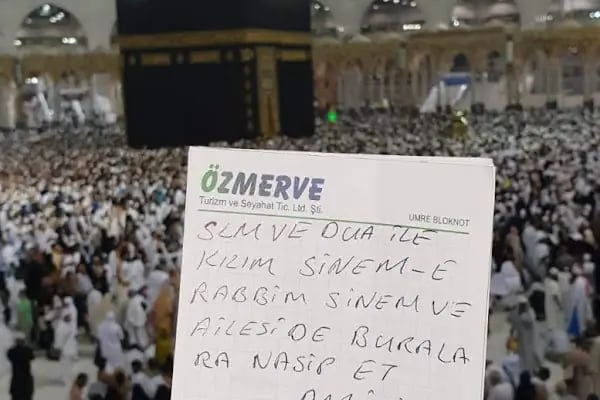 ÖZMERVE
Turizm ve Seyahat Tic. Ltd. Şti.
UMRE BLOKNOT
SLM VE DUA İLE
KIZIM SİNEM-E
RABBİM SİNEM VE
AİLESİ DE BURALA
RA NASİP ET